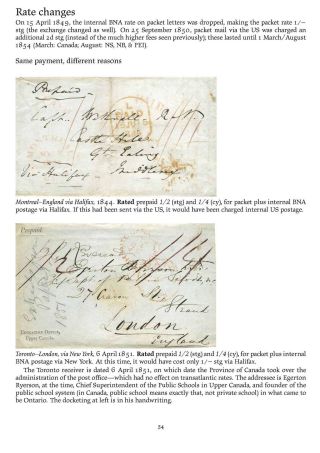 Rate changes
On 15 April 1849, the internal BNA rate on packet letters was dropped, making the packet rate 1/–
stg (the exchange changed as well). On 25 September 1850, packet mail via the US was charged an
additional 2d stg (instead of the much higher fees seen previously); these lasted until 1 March/August
1854 (March: Canada; August: NS, NB, & PEI).
Same payment, different reasons
Prepaid
Capt.
Castle Hill
via Halifax
Montreal–England via Halifax, 1844. Rated prepaid 1/2 (stg) and 1/4 (cy), for packet plus internal BNA
postage via Halifax. If this had been sent via the US, it would have been charged internal US postage.
Prepaid
Strand
London
England
Education Office,
Upper Canada.
Toronto–London, via New York, 6 April 1851. Rated prepaid 1/2 (stg) and 1/4 (cy), for packet plus internal
BNA postage via New York. At this time, it would have cost only 1/– stg via Halifax.
The Toronto receiver is dated 6 April 1851, on which date the Province of Canada took over the
administration of the post office—which had no effect on transatlantic rates. The addressee is Egerton
Ryerson, at the time, Chief Superintendent of the Public Schools in Upper Canada, and founder of the
public school system (in Canada, public school means exactly that, not private school) in what came to
be Ontario. The docketing at left is in his handwriting.
54